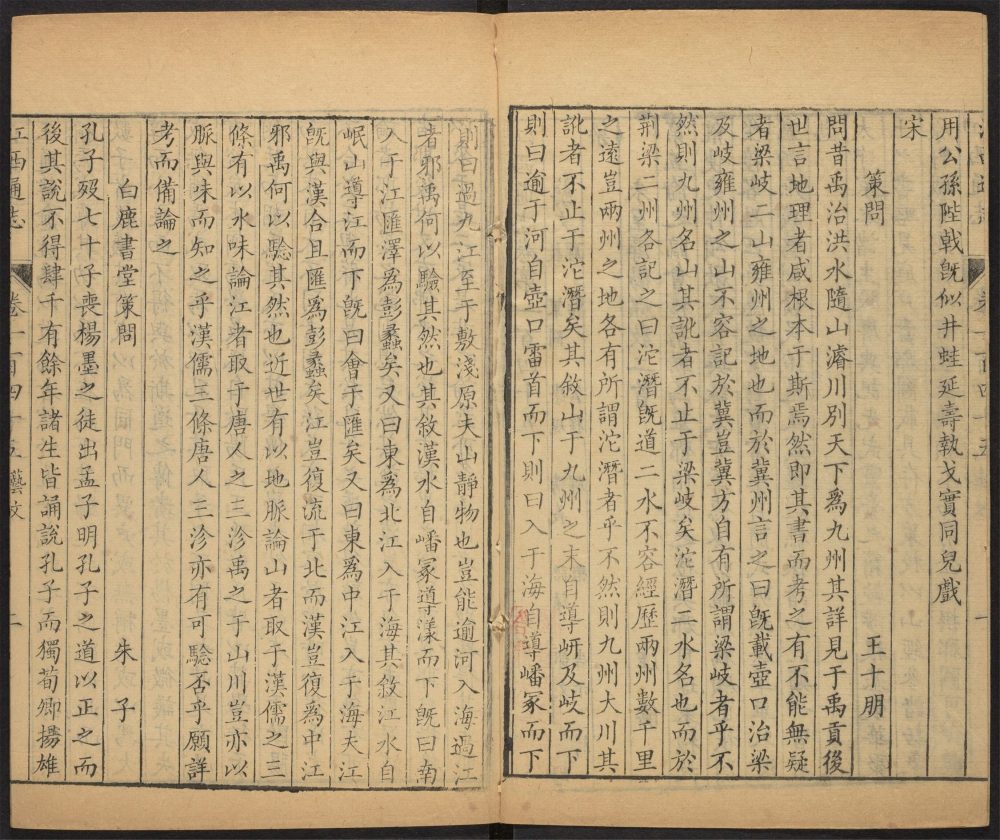 用公孫陛戟旣似井蛙延壽執戈實同兒戲
宋
策問　王十朋
問昔禹治洪水隨山濬川別天下爲九州其詳見于禹貢後
世言地理者咸根本于斯焉然即其書而考之有不能無疑
者梁岐二山雍州之地也而於冀州言之曰旣載壺口治梁
及岐雍州之山不容記於冀豈冀方自有所謂梁岐者乎不
然則九州名山其訛者不止于梁岐矣沱潛二水名也而於
荆梁二州各記之曰沱潛旣道二水不容經歷兩州數千里
之遠豈兩州之地各有所謂沱潛者乎不然則九州大川其
訛者不止于沱潛矣其敘山于九州之末自導岍及岐而下
則曰逾于河自壺口雷首而下則曰入于海自導嶓冢而下
則曰過九江至于敷淺原夫山靜物也豈能逾河入海過江
者邪禹何以驗其然也其敘漢水自嶓冢導漾而下旣曰南
入于江匯澤爲彭蠡矣又曰東爲北江入于海其敘江水自
岷山導江而下旣曰會于匯矣又曰東爲中江入于海夫江
旣與漢合且匯爲彭蠡矣江豈復流于北而漢豈復爲中江
邪禹何以驗其然也近世有以地脈論山者取于漢儒之三
條有以水味論江者取于唐人之三泠禹之于山川豈亦以
脈與味而知之乎漢儒三條唐人三泠亦有可驗否乎願詳
考而備論之
白鹿書堂策問　朱子
孔子歿七十子喪楊墨之徒出孟子明孔子之道以正之而
後其說不得肆千有餘年諸生皆誦說孔子而獨荀卿揚雄
江西通志　卷一百四十五藝文　二